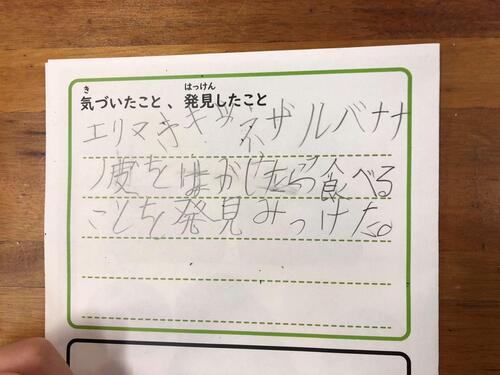 気づいたこと、発見したこと
エリマきキツネザルバナナ
ノ皮をはがしたら食べる
ことを発見みつけた。